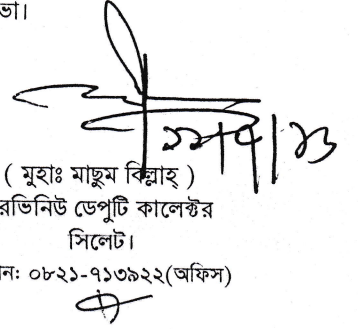 ভা।
( মুহাঃ মাছুম বিল্লাহ্ )
রভিনিউ ডেপুটি কালেক্টর
সিলেট।
ন: ০৮২১-৭১৩৯২২(অফিস)